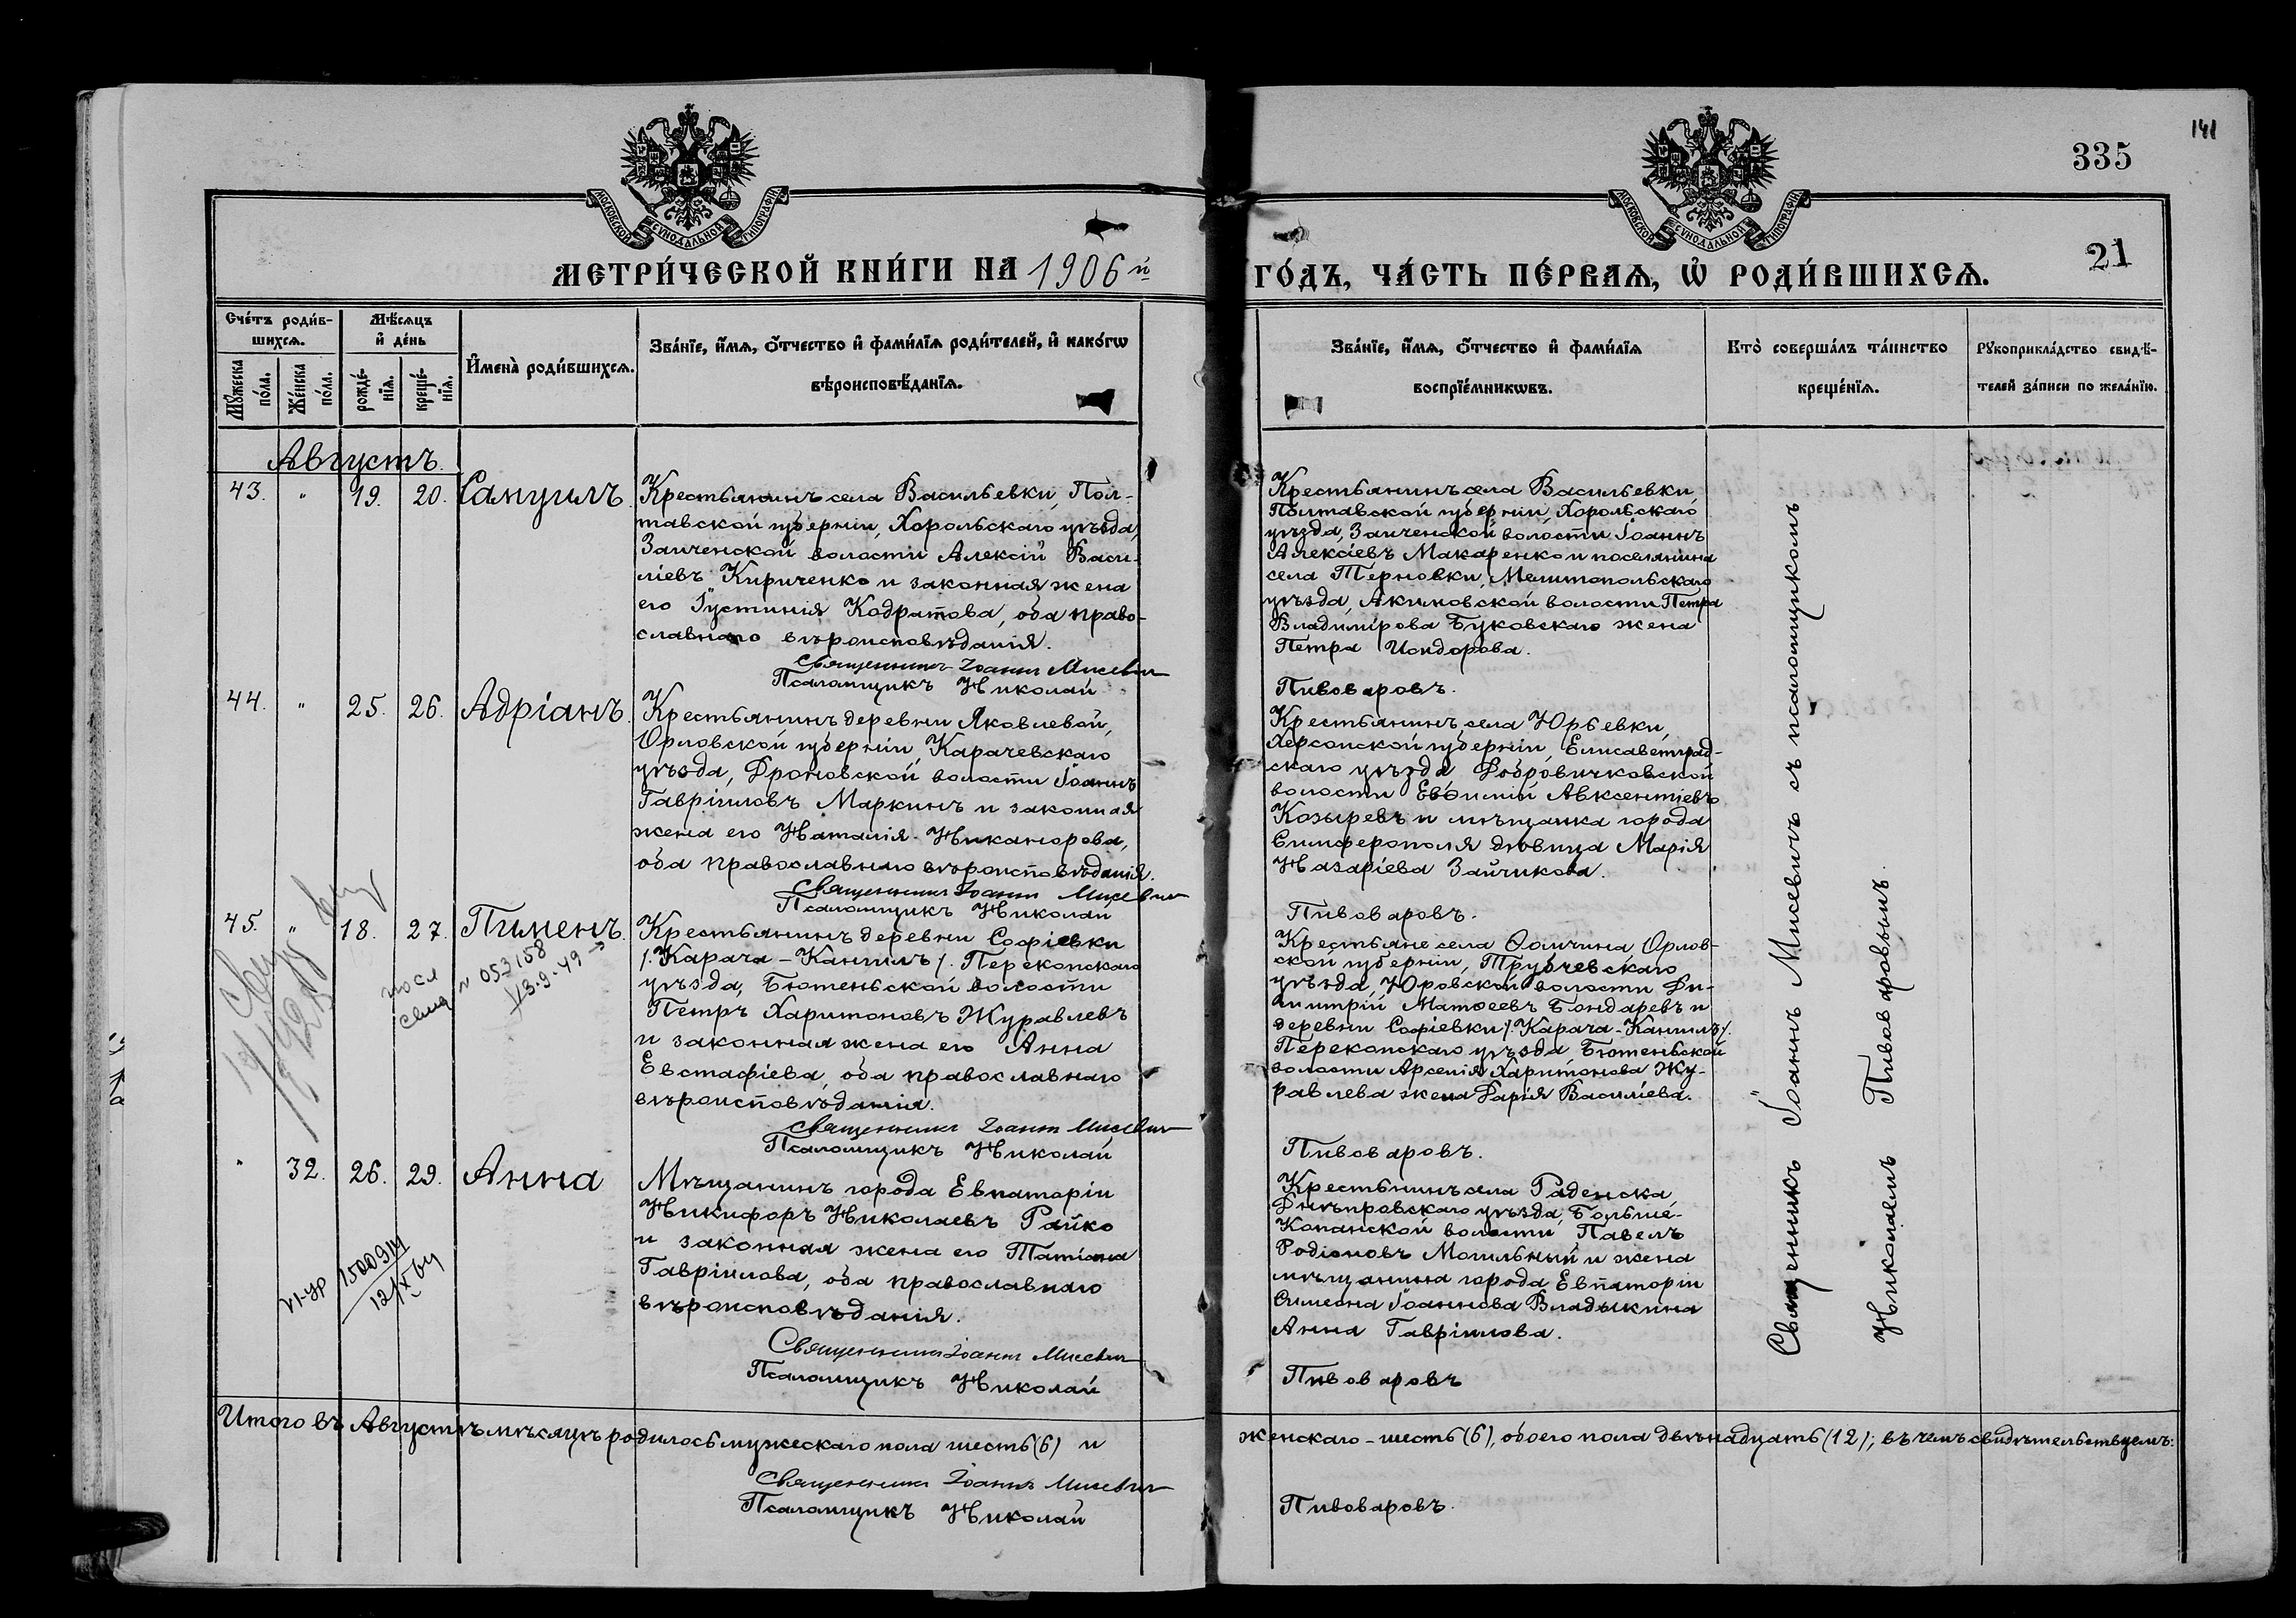 141
335
МОСКОВСКОЙ СУНОДАЛЬНОЙ ТИПОГРАФІИ
МОСКОВСКОЙ СУНОДАЛЬНОЙ ТИПОГРАФІИ
МЕТРИ́ЧЕСКОЙ КНИ́ГИ НА 1906 й
ГО́ДЪ, ЧА́СТЬ ПЕ́РВАѦ, Ѡ҆ РОДИ́ВШИХСѦ.
21
Сче́тъ роди́в-
шихсѧ.
Мѣ́сѧцъ
и҆ де́нь
Мꙋ́жеска по́ла.
Же́нска по́ла.
рожде́-нїѧ.
креще́-нїѧ.
И҆мена̀ роди́вшихсѧ.
Зва́нїе, и҆́мѧ, ѻ҆́тчество и҆ фами́лїѧ роди́телей, и҆ како́гѡ
вѣроисповѣ́данїѧ.
Зва́нїе, и҆́мѧ, ѻ҆́тчество и҆ фами́лїѧ
воспрїе́мникѡвъ.
Кто̀ соверша́лъ та́инство
креще́нїѧ.
Рꙋкоприкла́дство свидѣ́-
телей за́писи по жела́нїю.
Августъ.
43. " 19. 20. Самуилъ.
Крестьянинъ села Васильевки, Пол-
тавской губерніи, Хорольскаго уѣзда,
Заиченской волости Алексій Васи-
ліевъ Кириченко и законная жена
его Іустинія Кодратова, оба право-
славнаго вѣроисповѣданія.
Священникъ Іоаннъ Мисевичъ
Псаломщикъ Николай
Крестьянинъ села Васильевки,
Полтавской губерніи, Хорольскаго
уѣзда, Заиченской волости Іоаннъ
Алексіевъ Макаренко и поселянина
села Терновки, Мелитопольскаго
уѣзда, Акимовской волости Петра
Владимірова Буковскаго жена
Петра Исидорова.
Пивоваровъ.
44. " 25. 26. Адріанъ.
Крестьянинъ деревни Яковлевой,
Орловской губерніи, Карачевскаго
уѣзда, Дроновской волости Іоаннъ
Гавріиловъ Маркинъ и законная
жена его Наталія Никанорова,
оба православнаго вѣроисповѣданія.
Священникъ Іоаннъ Мисевичъ
Псаломщикъ Николай
Крестьянинъ села Юрьевки,
Херсонской губерніи, Елисаветград-
скаго уѣзда Добровичковской
волости Евѳимій Авксентіевъ
Козыревъ и мѣщанка города
Симферополя дѣвица Марія
Назаріева Зайчикова.
Пивоваровъ.
45. " 18. 27. Пименъ.
Крестьянинъ деревни Софіевки
/.Карача-Кангилъ/. Перекопскаго
уѣзда, Бютеньской волости
Петръ Харитоновъ Журавлевъ
и законная жена его Анна
Евстафіева, оба православнаго
вѣроисповѣданія.
Священникъ Іоаннъ Мисевичъ
Псаломщикъ Николай
посл
свид N 053158
V3-9-49 →
Крестьяне села Ѳомчина Орлов-
ской губерніи, Трубчевскаго
уѣзда, Юровской волости Ди-
митрій Матѳеевъ Бондаревъ и
деревни Софіевки /.Карача-Кангилъ/.
Перекопскаго уѣзда Бютеньской
волости Арсенія Харитонова Жу-
равлева жена Дарія Василіева.
Пивоваровъ.
" 32. 26. 29. Анна
Мѣщанинъ города Евпаторіи
Никифоръ Николаевъ Райко
и законная жена его Татіана
Гавріилова, оба православнаго
вѣроисповѣданія.
Священникъ Іоаннъ Мисевичъ
Псаломщикъ Николай
Крестьнинъ села Раденска,
Днѣпровскаго уѣзда, Больше-
Копанской волости Павелъ
Родіоновъ Могильный и жена
мѣщанина города Евпаторіи
Симеона Іоаннова Владыкина
Анна Гавріилова.
Пивоваровъ
Священникъ Іоаннъ Мисевичъ съ псаломщикомъ
Николаемъ Пивоваровымъ.
Итого въ Августѣ мѣсяцѣ родилось мужескаго пола шесть (6) и
женскаго - шесть (6), обоего пола двѣнадцать (12); въ чемъ свидѣтельствуемъ:
Священникъ Іоаннъ Мисевичъ
Псаломщикъ Николай
Пивоваровъ.